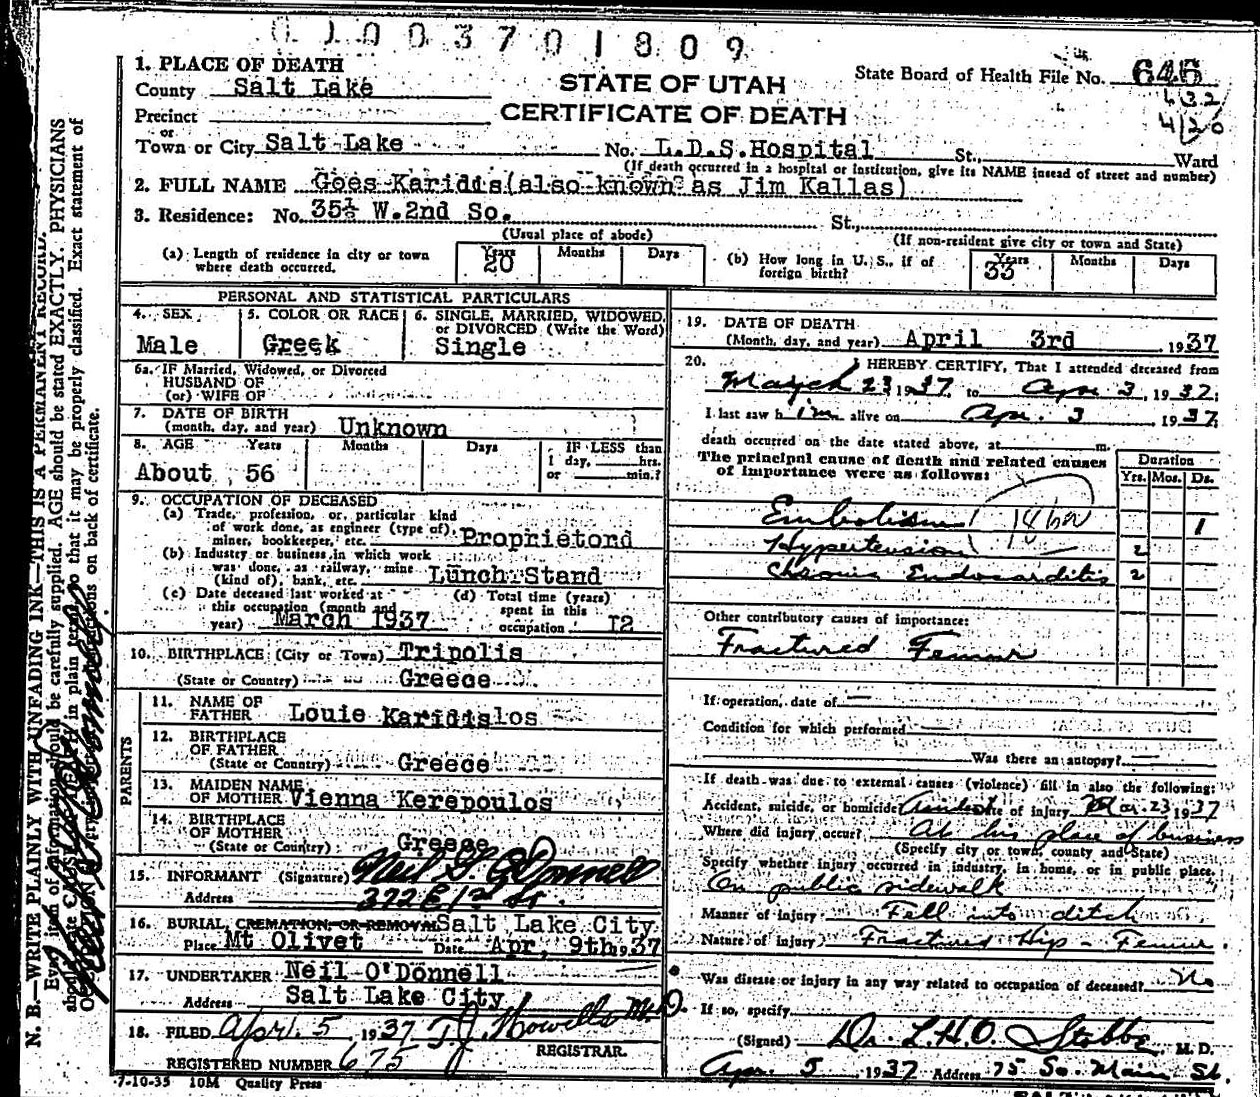 0 1 0 0 3 7 0 1 8 0 9
1. PLACE OF DEATH
County Salt Lake
STATE OF UTAH
CERTIFICATE OF DEATH
State Board of Health File No. 646
432
4/20
Precinct
or
Town or City Salt Lake No. L.D.S. Hospital St., Ward
(If death occurred in a hospital or institution, give its NAME instead of street and number)
2. FULL NAME Goes Karidis (also known as Jim Kallas)
3. Residence: No. 35½ W. 2nd So. St.,
(Usual place of abode) (If non-resident give city or town and State)
(a) Length of residence in city or town where death occurred. Years 20 Months Days
(b) How long in U. S., if of foreign birth? Years 33 Months Days
PERSONAL AND STATISTICAL PARTICULARS
4. SEX Male
5. COLOR OR RACE Greek
6. SINGLE, MARRIED, WIDOWED, or DIVORCED (Write the Word) Single
6a. IF Married, Widowed, or Divorced
HUSBAND OF
(or) WIFE OF
7. DATE OF BIRTH
(month, day, and year) Unknown
8. AGE Years Months Days IF LESS than
1 day, hrs.
or min.?
About 56
9. OCCUPATION OF DECEASED
(a) Trade, profession, or, particular kind
of work done, as engineer (type of),
miner, bookkeeper, etc. Proprietord
(b) Industry or business in which work
was done, as railway, mine
(kind of), bank, etc. Lunch Stand
(c) Date deceased last worked at
this occupation (month and
year) March 1937
(d) Total time (years)
spent in this
occupation 12
10. BIRTHPLACE (City or Town) Tripolis
(State or Country) Greece
PARENTS
11. NAME OF
FATHER Louie Karidislos
12. BIRTHPLACE
OF FATHER
(State or Country) Greece
13. MAIDEN NAME
OF MOTHER Vienna Kerepoulos
14. BIRTHPLACE
OF MOTHER
(State or Country) Greece
15. INFORMANT (Signature) Neil G. O'Donnell
Address 372 E 1st So.
16. BURIAL, CREMATION, OR REMOVAL Salt Lake City
Place Mt Olivet Date Apr, 9th 1937
17. UNDERTAKER Neil O'Donnell
Address Salt Lake City
18. FILED Apr. 5 1937 T.J. Howells M.D.
REGISTRAR.
REGISTERED NUMBER 675
7-10-35 10M Quality Press
19. DATE OF DEATH
(Month, day, and year) April 3rd 1937
20. I HEREBY CERTIFY, That I attended deceased from
March 23 1937, to Apr. 3, 1937.
I last saw him alive on Apr. 3 1937;
death occurred on the date stated above, at m.
The principal cause of death and related causes
of importance were as follows:
Duration
Yrs. Mos. Ds.
Embolism 1
Hypertension 2
Chronic Endocarditis 2
Other contributory causes of importance:
Fractured Femur
If operation, date of
Condition for which performed
Was there an autopsy?
If death was due to external causes (violence) fill in also the following:
Accident, suicide, or homicide Accident Date of injury Mar. 23 1937
Where did injury occur? At his place of business
(Specify city or town, county and State)
Specify whether injury occurred in industry, in home, or in public place.
On public sidewalk
Manner of injury Fell into ditch
Nature of injury Fractured Hip - Femur.
Was disease or injury in any way related to occupation of deceased? No
If so, specify
(Signed) Dr. L.H.O. Stobbe, M. D.
Apr. 5 1937 Address 75 So. Main St.
N. B.—WRITE PLAINLY WITH UNFADING INK—THIS IS A PERMANENT RECORD.
Every item of information should be carefully supplied. AGE should be stated EXACTLY. PHYSICIANS
should state CAUSE OF DEATH in plain terms, so that it may be properly classified. Exact statement of
OCCUPATION is very important. See instructions on back of certificate.